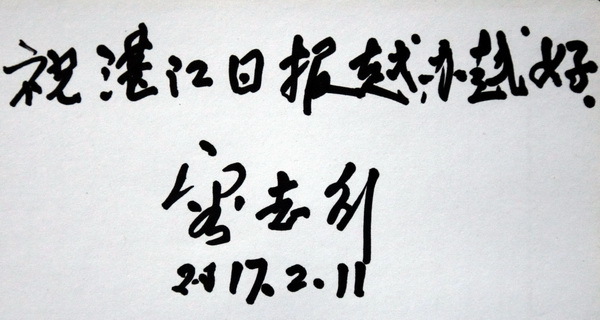 祝湛江日报越办越好.
志
2017.2.11